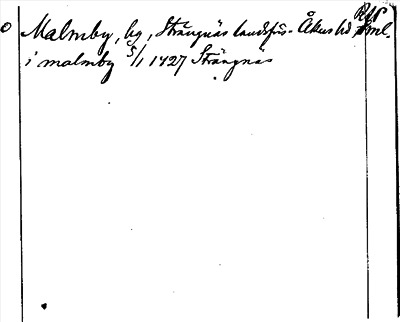 o Malmby, by, Strängnäs landsfös. Åkers hd Sml.
i malmby 5/1 1427 Strängnäs